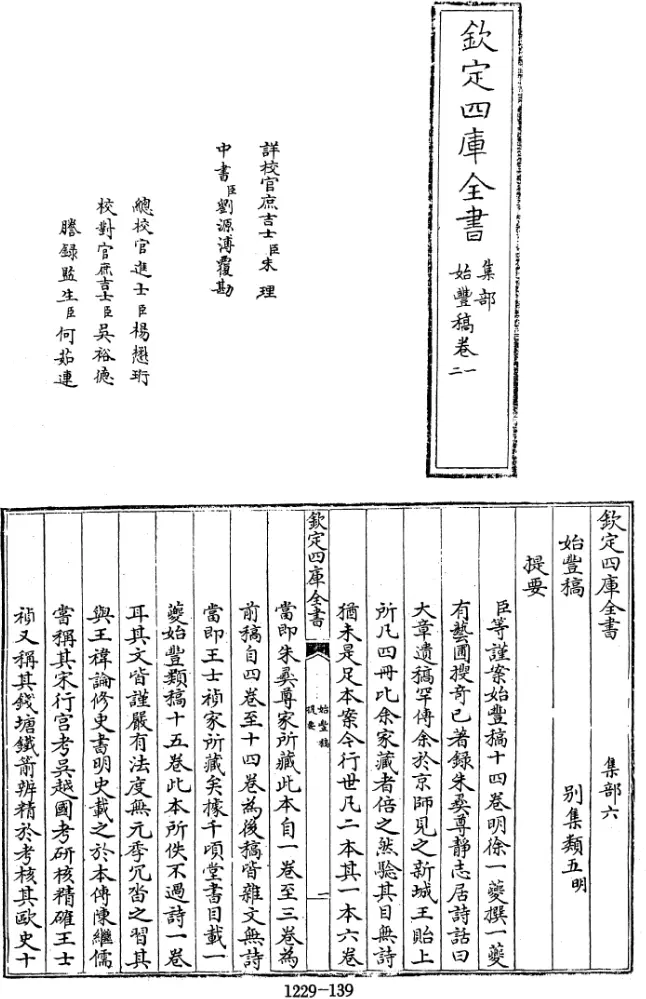 欽定四庫全書
集部
始豐稿卷一二
詳校官庶吉士臣朱理
中書臣劉源溥覆勘
總校官進士臣楊懋珩
校對官庶吉士臣吳裕德
謄錄監生臣何茹連
欽定四庫全書 集部六
始豐稿 別集類五明
提要
臣等謹案始豐稿十四卷明徐一夔撰一夔
有藝圃搜奇已著錄朱彝尊靜志居詩話曰
大章遺稿罕傳余於京師見之新城王貽上
所凡四冊比余家藏者倍之然驗其目無詩
猶未是足本案今行世凡二本其一本六卷
欽定四庫全書
始豐稿
提要
一
當即朱彝尊家所藏此本自一卷至三卷為
前稿自四卷至十四卷為後稿皆雜文無詩
當即王士禎家所藏矣據千頃堂書目載一
夔始豐類稿十五卷此本所佚不過詩一卷
耳其文皆謹嚴有法度無元季冗沓之習其
與王禕論修史書明史載之於本傳陳繼儒
嘗稱其宋行宮考吳越國考研核精確王士
禎又稱其錢塘鐵箭辨精於考核其歐史十
1229-139